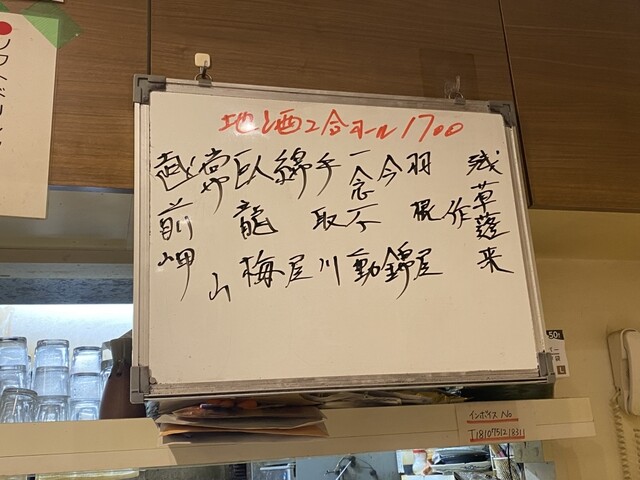 地酒2合オール1700
浅草蓬来
作
羽根屋
今錦
一念不動
手取川
綿屋
臥龍梅
常山
越前岬
ソフトドリン
インボイス No
T1810751218311
50
L